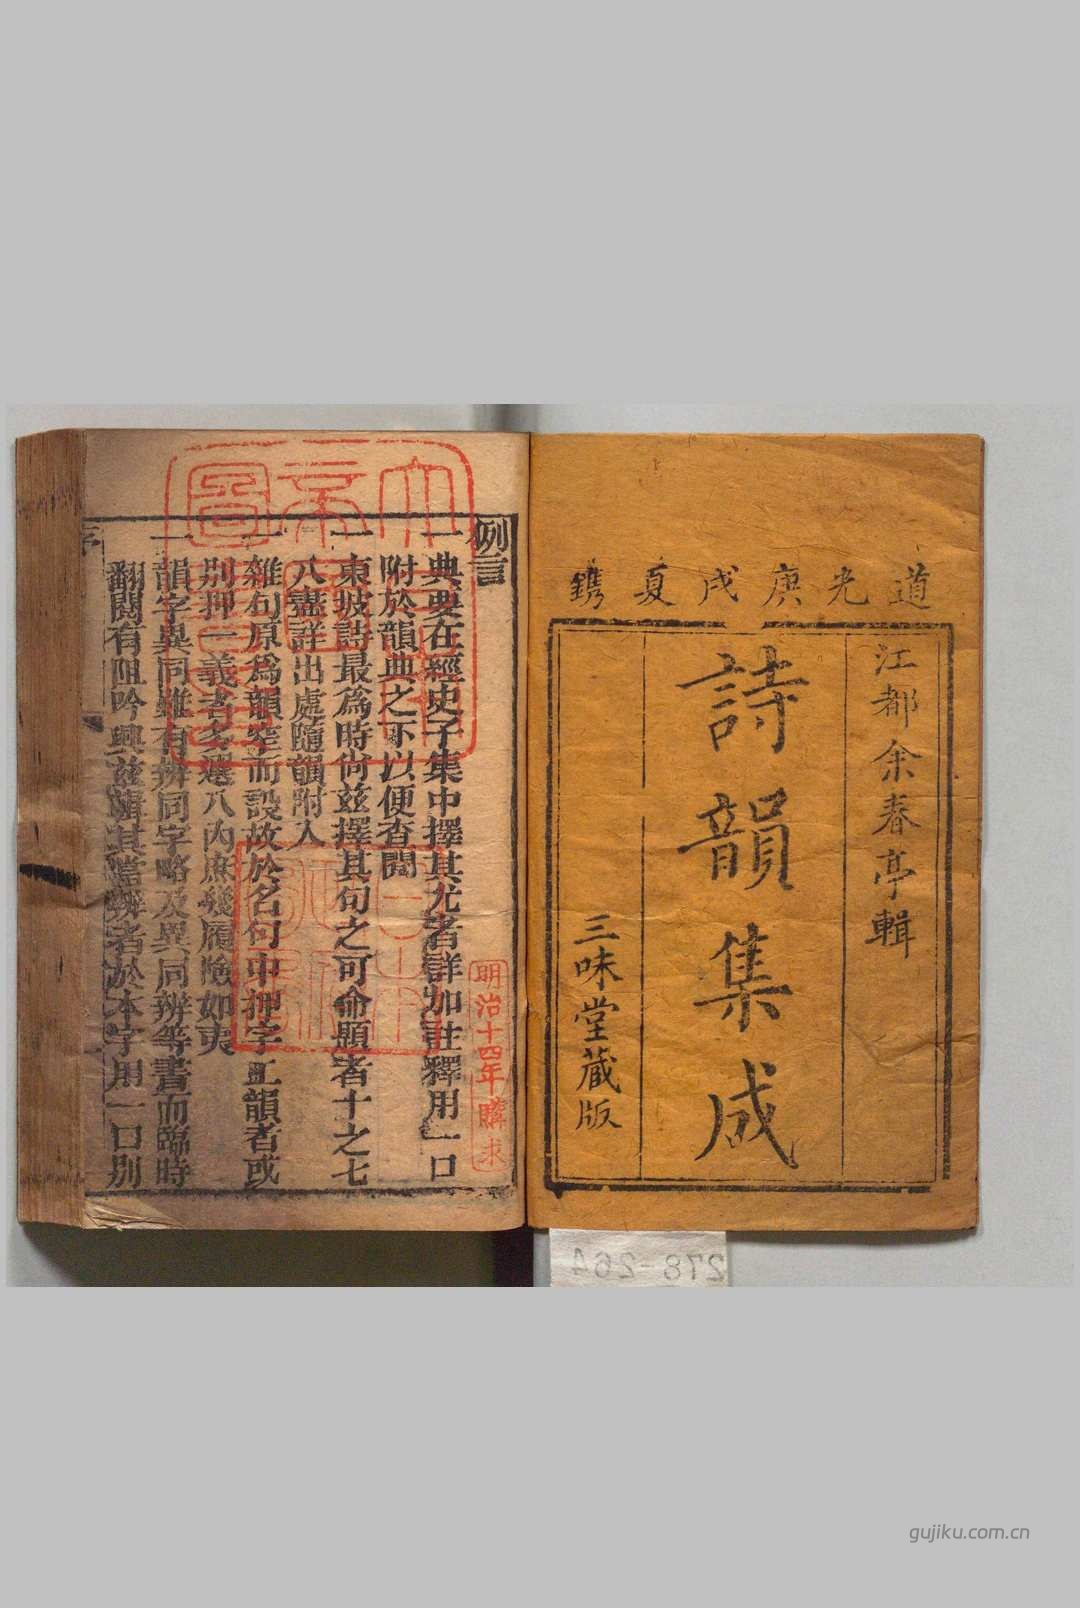 道光庚戌夏鐫
江都余春亭輯
詩韻集成
三味堂藏版
例言
一典要在經史子集中擇其尤者詳加註釋用一口
附於韻典之下以便查閱
一東坡詩最爲時尚茲擇其句之可命題者十之七
八盡詳出處隨韻附入
一雜句原爲韻窄而設故於名句中押字工韻者或
別押一義者多選入內庶幾履險如夷
一韻字異同雖有辨同字略及異同辨等書而臨時
翻閱有阻吟興茲輯其當辨者於本字用一口別
序
明治十四年購求
278-264
gujiku.com.cn